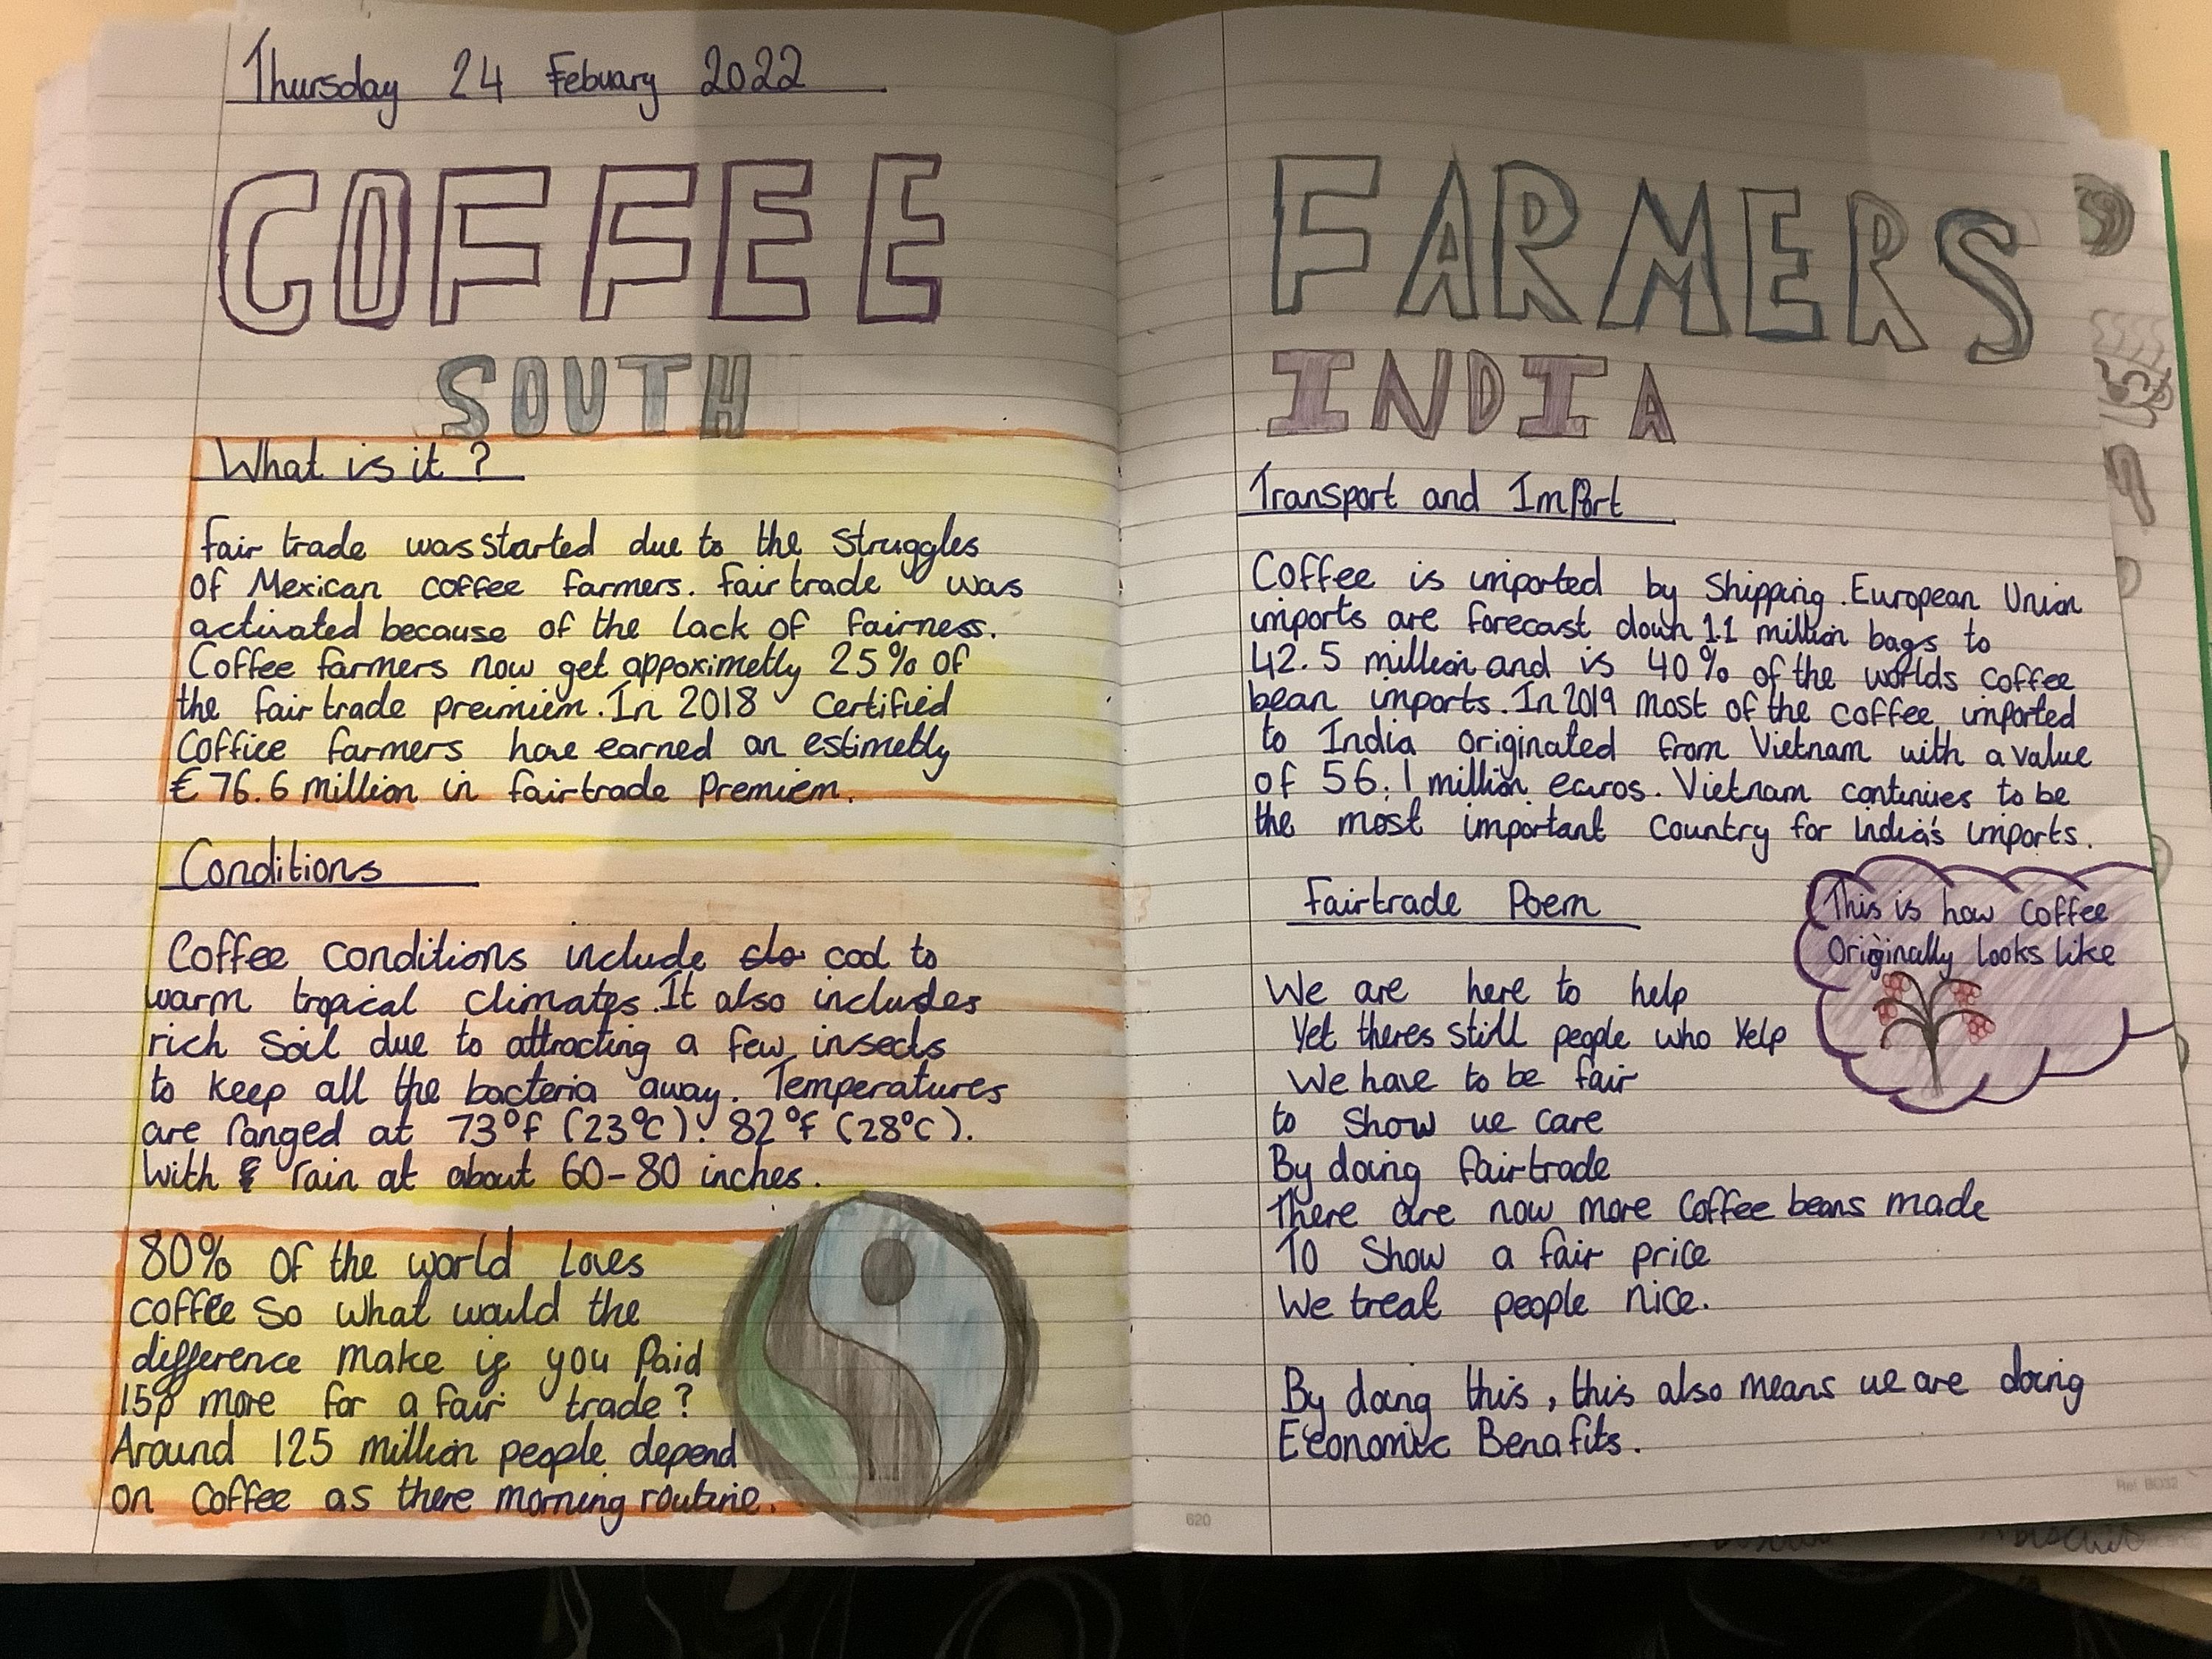 Thursday 24 Febuary 2022
COFFEE
SOUTH
What is it?
fair trade was started due to the struggles
of Mexican coffee farmers. fair trade was
activated because of the lack of fairness.
Coffee farmers now get appoximetly 25% of
the fair trade preimiem. In 2018 certified
Coffiee farmers have earned an estimetly
€76.6 million in fairtrade Premiem.
Conditions
Coffee conditions include clo cool to
warm tropical climates. It also includes
rich soil due to attracting a few insects
to keep all the bacteria away. Temperatures
are ranged at 73°f (23°c): 82°f (28°c).
With rain at about 60-80 inches.
80% of the world loves
coffee so what would the
difference make if you Paid
15p more for a fair trade?
Around 125 million people depend
on coffee as there morning routine.
FARMERS
INDIA
Transport and Import
Coffee is imported by Shipping. European Union
imports are forecast down 1.1 million bags to
42.5 million and is 40% of the worlds coffee
bean imports. In 2019 most of the coffee imported
to India originated from Vietnam with a value
of 56.1 million ecuros. Vietnam continues to be
the most important country for India's imports.
Fairtrade Poem
This is how coffee
Originally looks like
We are here to help
Yet theres still people who Yelp
We have to be fair
to show we care
By doing fairtrade
There are now more coffee beans made
To Show a fair price
We treat people nice.
By doing this, this also means we are doing
Economic Benafits.
620
Ref. BD32